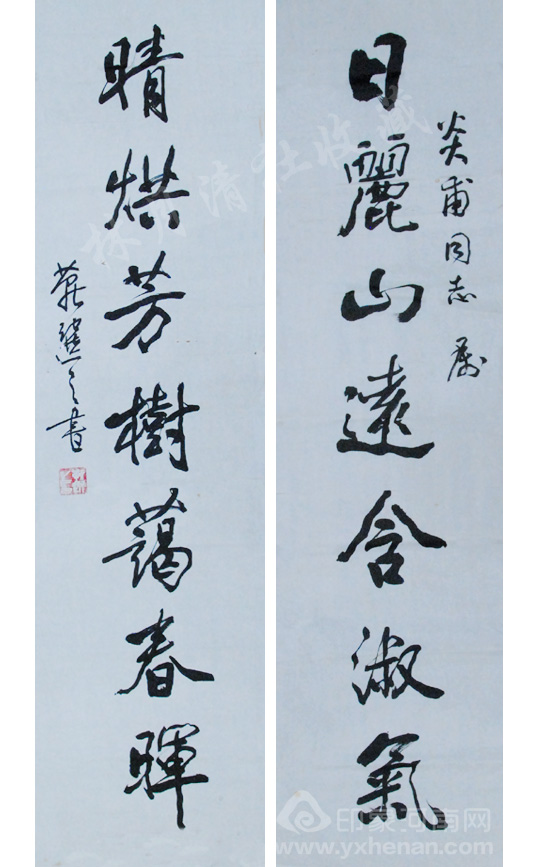 炎甫同志属
日麗山遠含淑氣
晴烘芳樹藹春暉
書
印象河南网
www.yxhenan.com